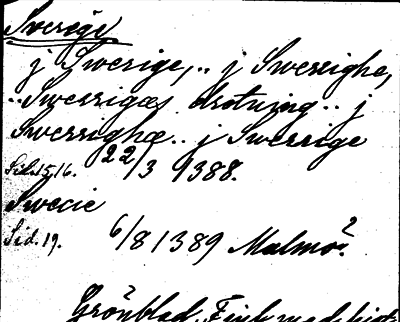 Sverige
j Swerige, .. j Swerighe,
.. Swerrigæs drotning .. j
Swerrighæ .. j Swerrige
Sid. 15, 16. 22/3 1388.
Swecie
Sid. 19. 6/8 1389 Malmö?
Grönblad, Finl. med.